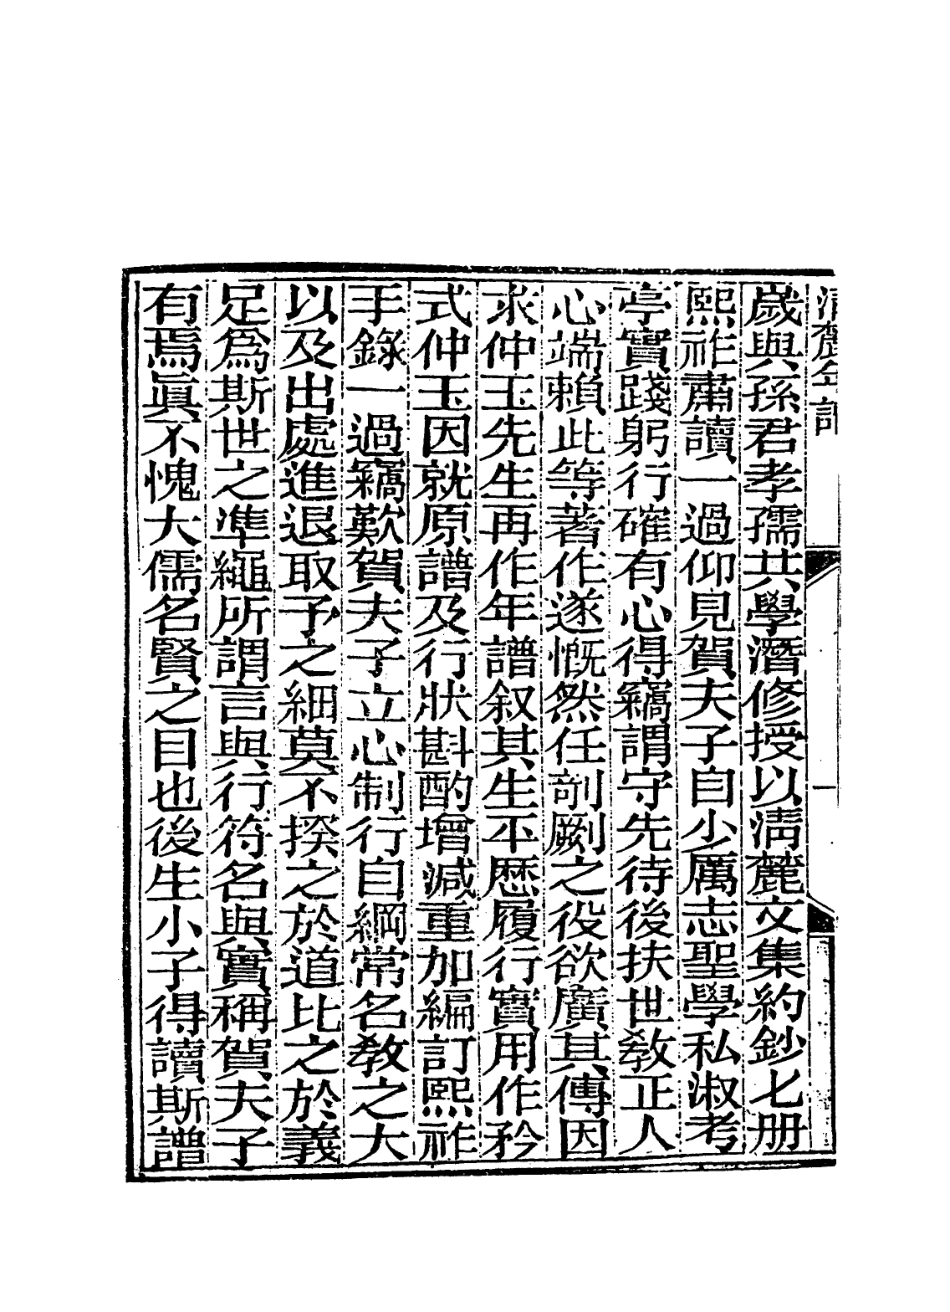 清麓年譜
一
歲與孫君孝孺共學濳修授以淸麓文集約鈔七册
熙祚肅讀一過仰見賀夫子自少厲志聖學私淑考
亭實踐躬行確有心得竊謂守先待後扶世敎正人
心端賴此等著作遂慨然任剞劂之役欲廣其傳因
求仲玉先生再作年譜叙其生平歷履行實用作矜
式仲玉因就原譜及行狀斟酌增減重加編訂熙祚
手錄一過竊歎賀夫子立心制行自綱常名敎之大
以及出處進退取予之細莫不揆之於道比之於義
足爲斯世之準繩所謂言與行符名與實稱賀夫子
有焉眞不愧大儒名賢之目也後生小子得讀斯譜